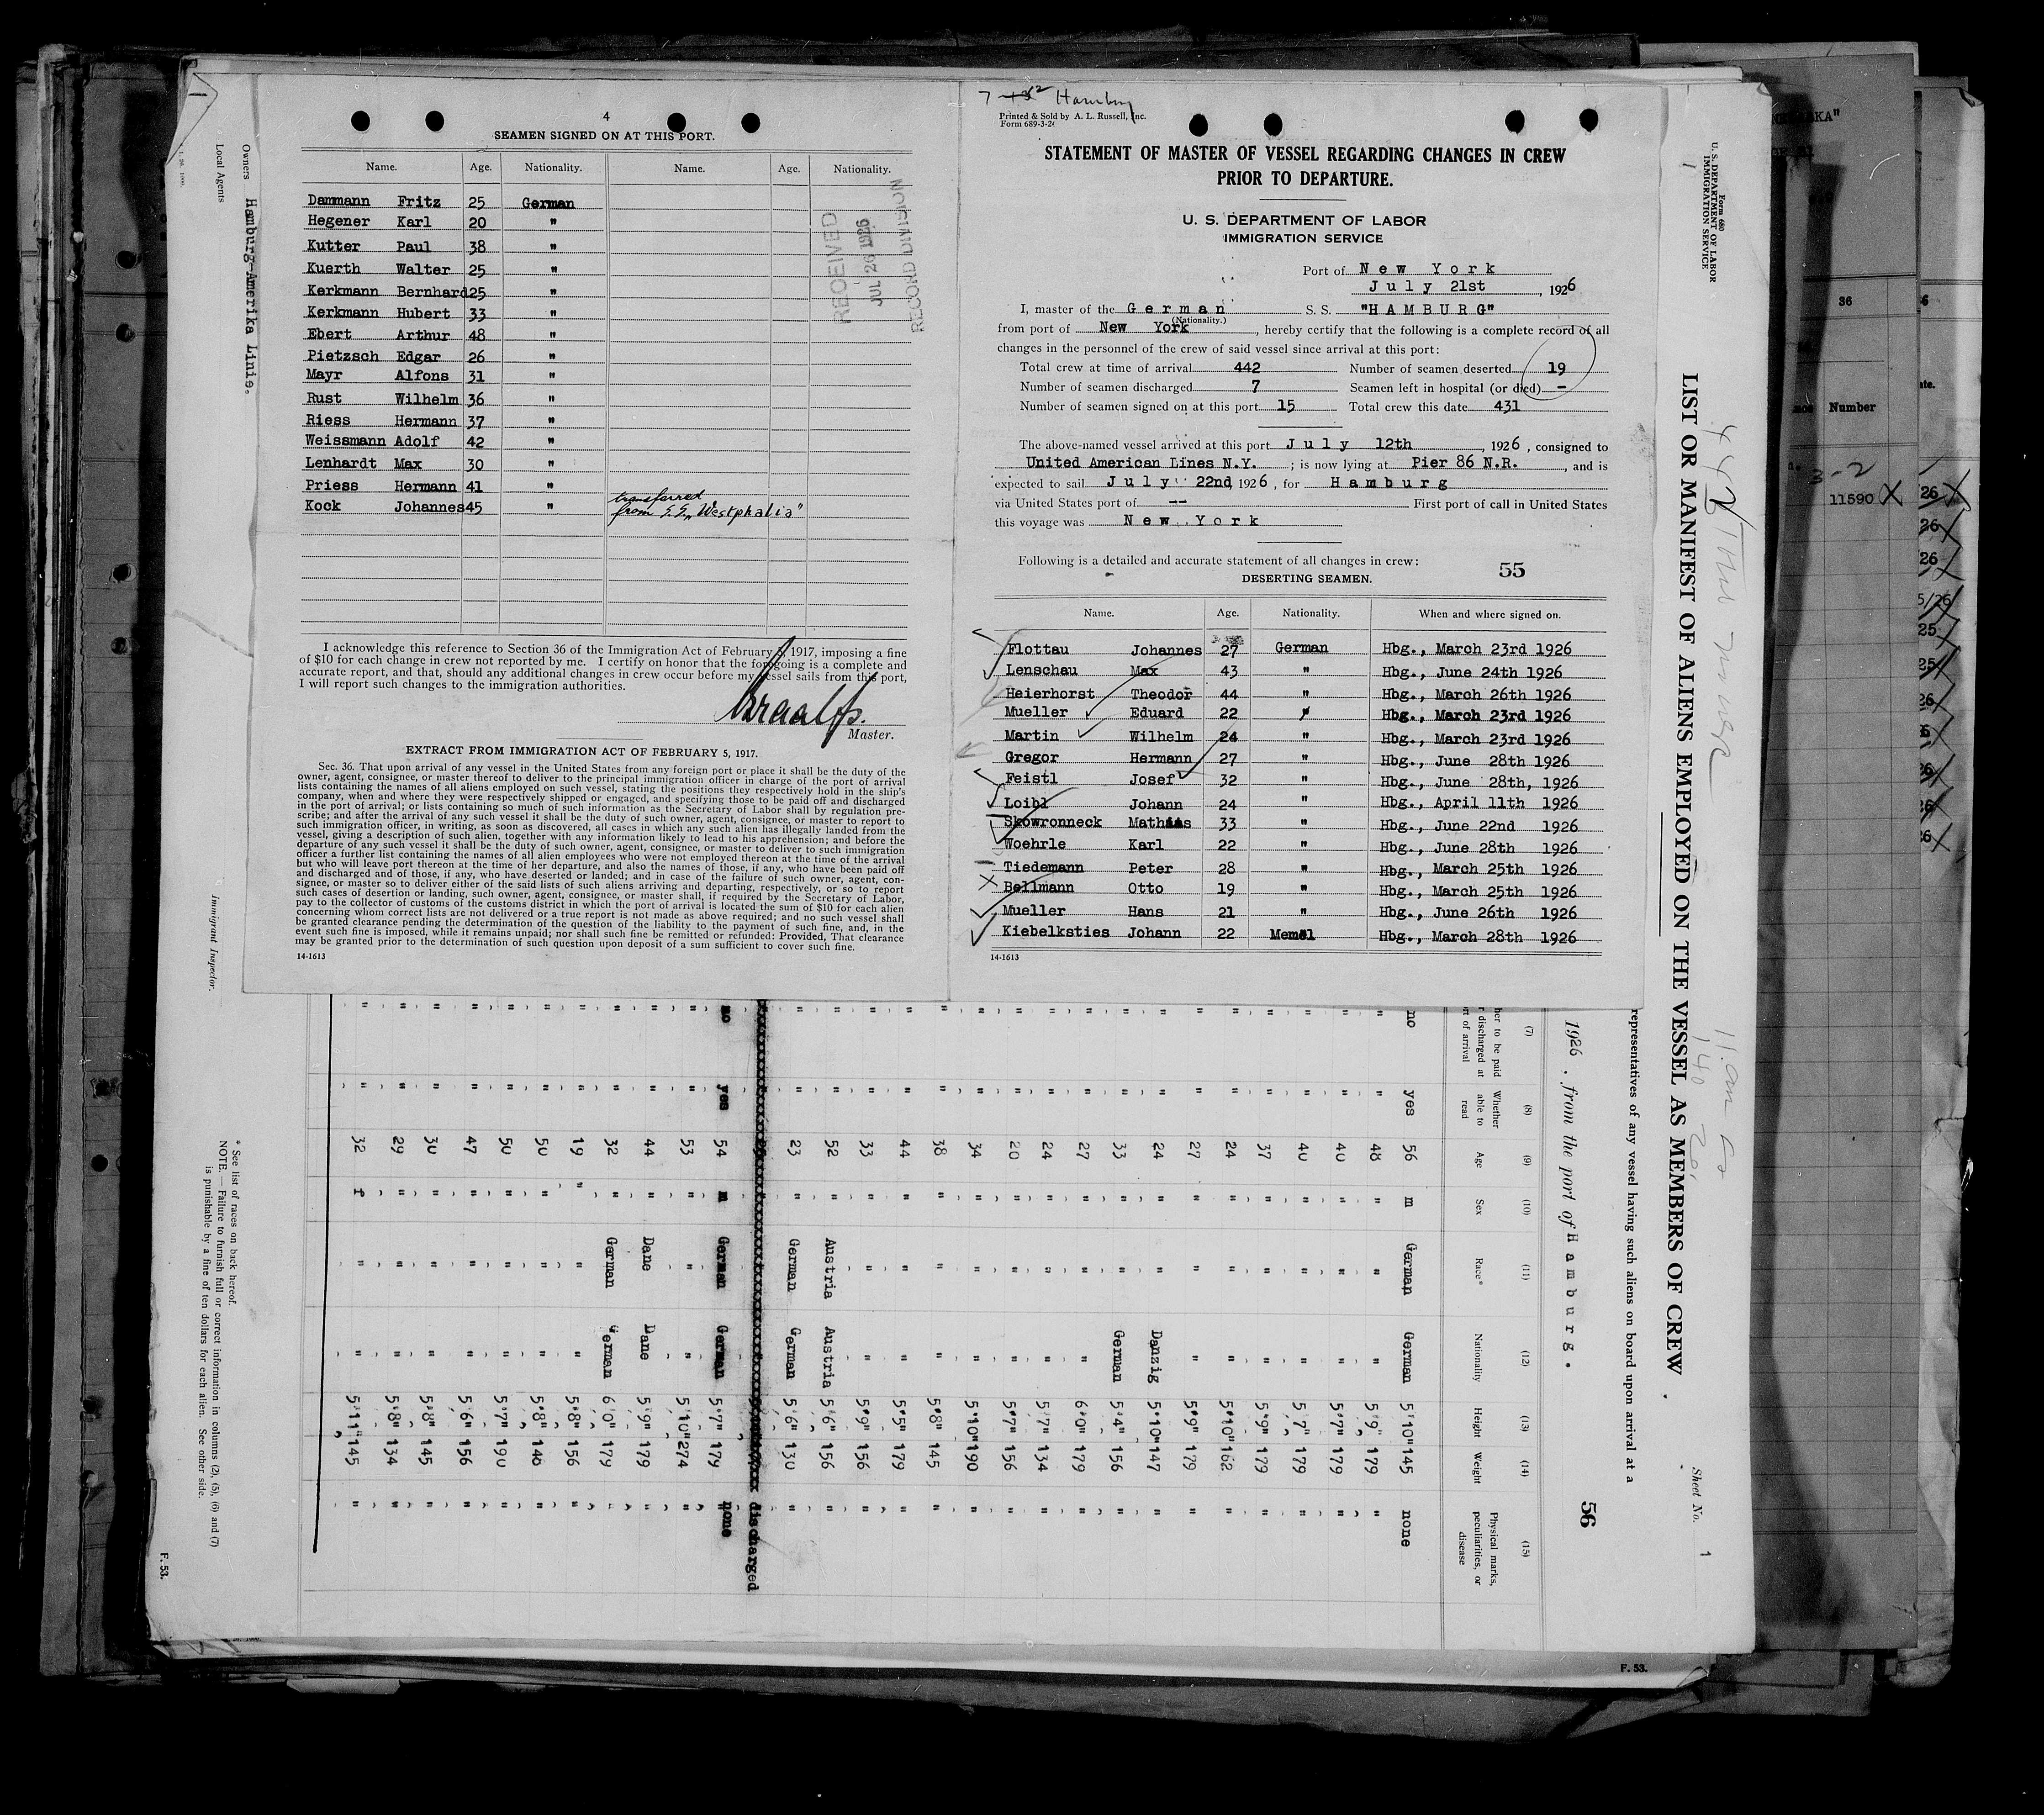 4
SEAMEN SIGNED ON AT THIS PORT.
Name. Age. Nationality. Name. Age. Nationality.
Dammann Fritz 25 German
Hegener Karl 20 "
Kutter Paul 38 "
Kuerth Walter 25 "
Kerkmann Bernhard 25 "
Kerkmann Hubert 33 "
Ebert Arthur 48 "
Pietzsch Edgar 26 "
Mayr Alfons 31 "
Rust Wilhelm 36 "
Riess Hermann 37 "
Weissmann Adolf 42 "
Lenhardt Max 30 "
Priess Hermann 41 "
Kock Johannes 45 " transferred
from S.S. "Westphalia"
RECEIVED
JUL 26 1926
RECORD DIVISION
I acknowledge this reference to Section 36 of the Immigration Act of February 5, 1917, imposing a fine
of $10 for each change in crew not reported by me. I certify on honor that the foregoing is a complete and
accurate report, and that, should any additional changes in crew occur before my vessel sails from this port,
I will report such changes to the immigration authorities.
Master.
EXTRACT FROM IMMIGRATION ACT OF FEBRUARY 5, 1917.
Sec. 36. That upon arrival of any vessel in the United States from any foreign port or place it shall be the duty of the
owner, agent, consignee, or master thereof to deliver to the principal immigration officer in charge of the port of arrival
lists containing the names of all aliens employed on such vessel, stating the positions they respectively hold in the ship's
company, when and where they were respectively shipped or engaged, and specifying those to be paid off and discharged
in the port of arrival; or lists containing so much of such information as the Secretary of Labor shall by regulation pre-
scribe; and after the arrival of any such vessel it shall be the duty of such owner, agent, consignee, or master to report to
such immigration officer, in writing, as soon as discovered, all cases in which any such alien has illegally landed from the
vessel, giving a description of such alien, together with any information likely to lead to his apprehension; and before the
departure of any such vessel it shall be the duty of such owner, agent, consignee, or master to deliver to such immigration
officer a further list containing the names of all alien employees who were not employed thereon at the time of the arrival
but who will leave port thereon at the time of her departure, and also the names of those, if any, who have been paid off
and discharged and of those, if any, who have deserted or landed; and in case of the failure of such owner, agent, con-
signee, or master so to deliver either of the said lists of such aliens arriving and departing, respectively, or so to report
such cases of desertion or landing, such owner, agent, consignee, or master shall, if required by the Secretary of Labor,
pay to the collector of customs of the customs district in which the port of arrival is located the sum of $10 for each alien
concerning whom correct lists are not delivered or a true report is not made as above required; and no such vessel shall
be granted clearance pending the determination of the question of the liability to the payment of such fine, and, in the
event such fine is imposed, while it remains unpaid; nor shall such fine be remitted or refunded: Provided, That clearance
may be granted prior to the determination of such question upon deposit of a sum sufficient to cover such fine.
14-1613
Hamburg
Printed & Sold by A. L. Russell, Inc.
Form 689-3-26
STATEMENT OF MASTER OF VESSEL REGARDING CHANGES IN CREW
PRIOR TO DEPARTURE.
U. S. DEPARTMENT OF LABOR
IMMIGRATION SERVICE
Port of New York
July 21st, 1926
I, master of the German S. S. "HAMBURG"
(Nationality.)
from port of New York, hereby certify that the following is a complete record of all
changes in the personnel of the crew of said vessel since arrival at this port:
Total crew at time of arrival 442 Number of seamen deserted 19
Number of seamen discharged 7 Seamen left in hospital (or died) -
Number of seamen signed on at this port 15 Total crew this date 431
The above-named vessel arrived at this port July 12th, 1926, consigned to
United American Lines N.Y.; is now lying at Pier 86 N.R., and is
expected to sail July 22nd, 1926, for Hamburg
via United States port of -- First port of call in United States
this voyage was New York
Following is a detailed and accurate statement of all changes in crew:
55
DESERTING SEAMEN.
Name. Age. Nationality. When and where signed on.
Flottau Johannes 27 German Hbg., March 23rd 1926
Lenschau Max 43 " Hbg., June 24th 1926
Heierhorst Theodor 44 " Hbg., March 26th 1926
Mueller Eduard 22 " Hbg., March 23rd 1926
Martin Wilhelm 24 " Hbg., March 23rd 1926
Gregor Hermann 27 " Hbg., June 28th 1926
Feistl Josef 32 " Hbg., June 28th, 1926
Loibl Johann 24 " Hbg., April 11th 1926
Skowronneck Mathias 33 " Hbg., June 22nd 1926
Woehrle Karl 22 " Hbg., June 28th 1926
Tiedemann Peter 28 " Hbg., March 25th 1926
Bellmann Otto 19 " Hbg., March 25th 1926
Mueller Hans 21 " Hbg., June 26th 1926
Kiebelksties Johann 22 Memel Hbg., March 28th 1926
14-1613
Form 680
U. S. DEPARTMENT OF LABOR
IMMIGRATION SERVICE
LIST OR MANIFEST OF ALIENS EMPLOYED ON THE VESSEL AS MEMBERS OF CREW
Sheet No. 1
representatives of any vessel having such aliens on board upon arrival at a
1926, from the port of Hamburg.
56
(7) (8) (9) (10) (11) (12) (13) (14) (15)
her to be paid
r discharged at
rt of arrival
Whether able to read
Age
Sex
Race*
Nationality
Height
Weight
Physical marks, peculiarities, or disease
no yes 56 m German German 5'10" 145 none
" " 48 " " " 5'9" 179 "
" " 40 " " " 5'7" 179 "
" " 40 " " " 5'7" 179 "
" " 37 " " " 5'9" 179 "
" " 24 " " " 5'10" 162 "
" " 27 " " " 5'9" 179 "
" " 24 " " Danzig 5'10" 147 "
" " 33 " " German 5'4" 156 "
" " 27 " " " 6'0" 179 "
" " 24 " " " 5'7" 134 "
" " 20 " " " 5'7" 156 "
" " 34 " " " 5'10" 190 "
" " 38 " " " 5'8" 145 "
" " 44 " " " 5'5" 179 "
" " 33 " " " 5'9" 156 "
" " 52 " Austria Austria 5'6" 156 "
" " 23 " German German 5'6" 130 "
discharged
no yes 54 m German German 5'7" 179 none
" " 53 " " " 5'10" 274 "
" " 44 " Dane Dane 5'9" 179 "
" " 32 " German German 6'0" 179 "
" " 19 " " " 5'8" 156 "
" " 50 " " " 5'8" 140 "
" " 50 " " " 5'7" 190 "
" " 47 " " " 5'6" 156 "
" " 30 " " " 5'8" 145 "
" " 29 " " " 5'8" 134 "
" " 32 f " " 5'11" 145 "
Owners Hamburg-Amerika Linie.
Local Agents
Immigrant Inspector.
* See list of races on back hereof.
NOTE.—Failure to furnish full or correct information in columns (2), (5), (6) and (7)
is punishable by a fine of ten dollars for each alien. See other side.
F. 53.
F. 53.
36
Number
3-2
11590